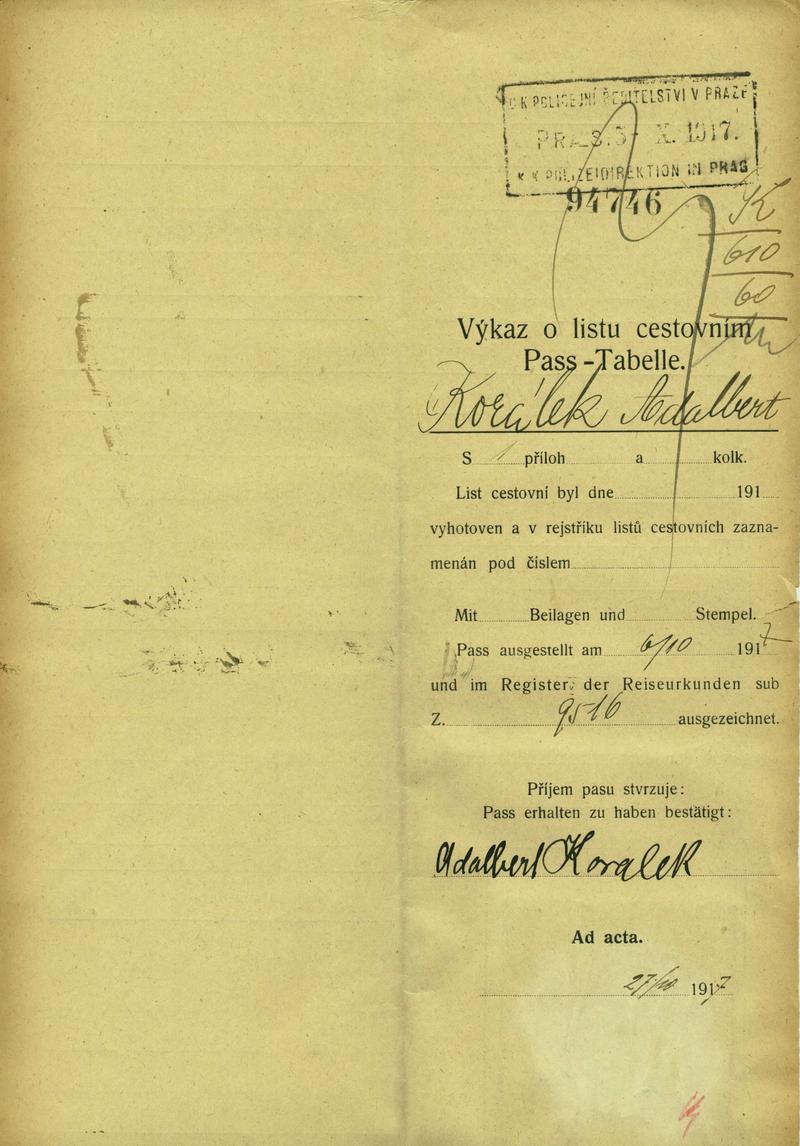 K. K. POLICEJNÍ ŘEDITELSTVÍ V PRAZE
X. 1917.
K. K. POLIZEIDIREKTION IN PRAG
94746
K
610
60
Výkaz o listu cestovním
Pass-Tabelle.
Korálek Adalbert
S příloh a kolk.
List cestovní byl dne 191
vyhotoven a v rejstříku listů cestovních zazna-
menán pod číslem
Mit Beilagen und Stempel.
Pass ausgestellt am 6/10 1917
und im Register der Reiseurkunden sub
Z. 9516 ausgezeichnet.
Příjem pasu stvrzuje:
Pass erhalten zu haben bestätigt:
Adalbert Koralek
Ad acta.
27/10 1917